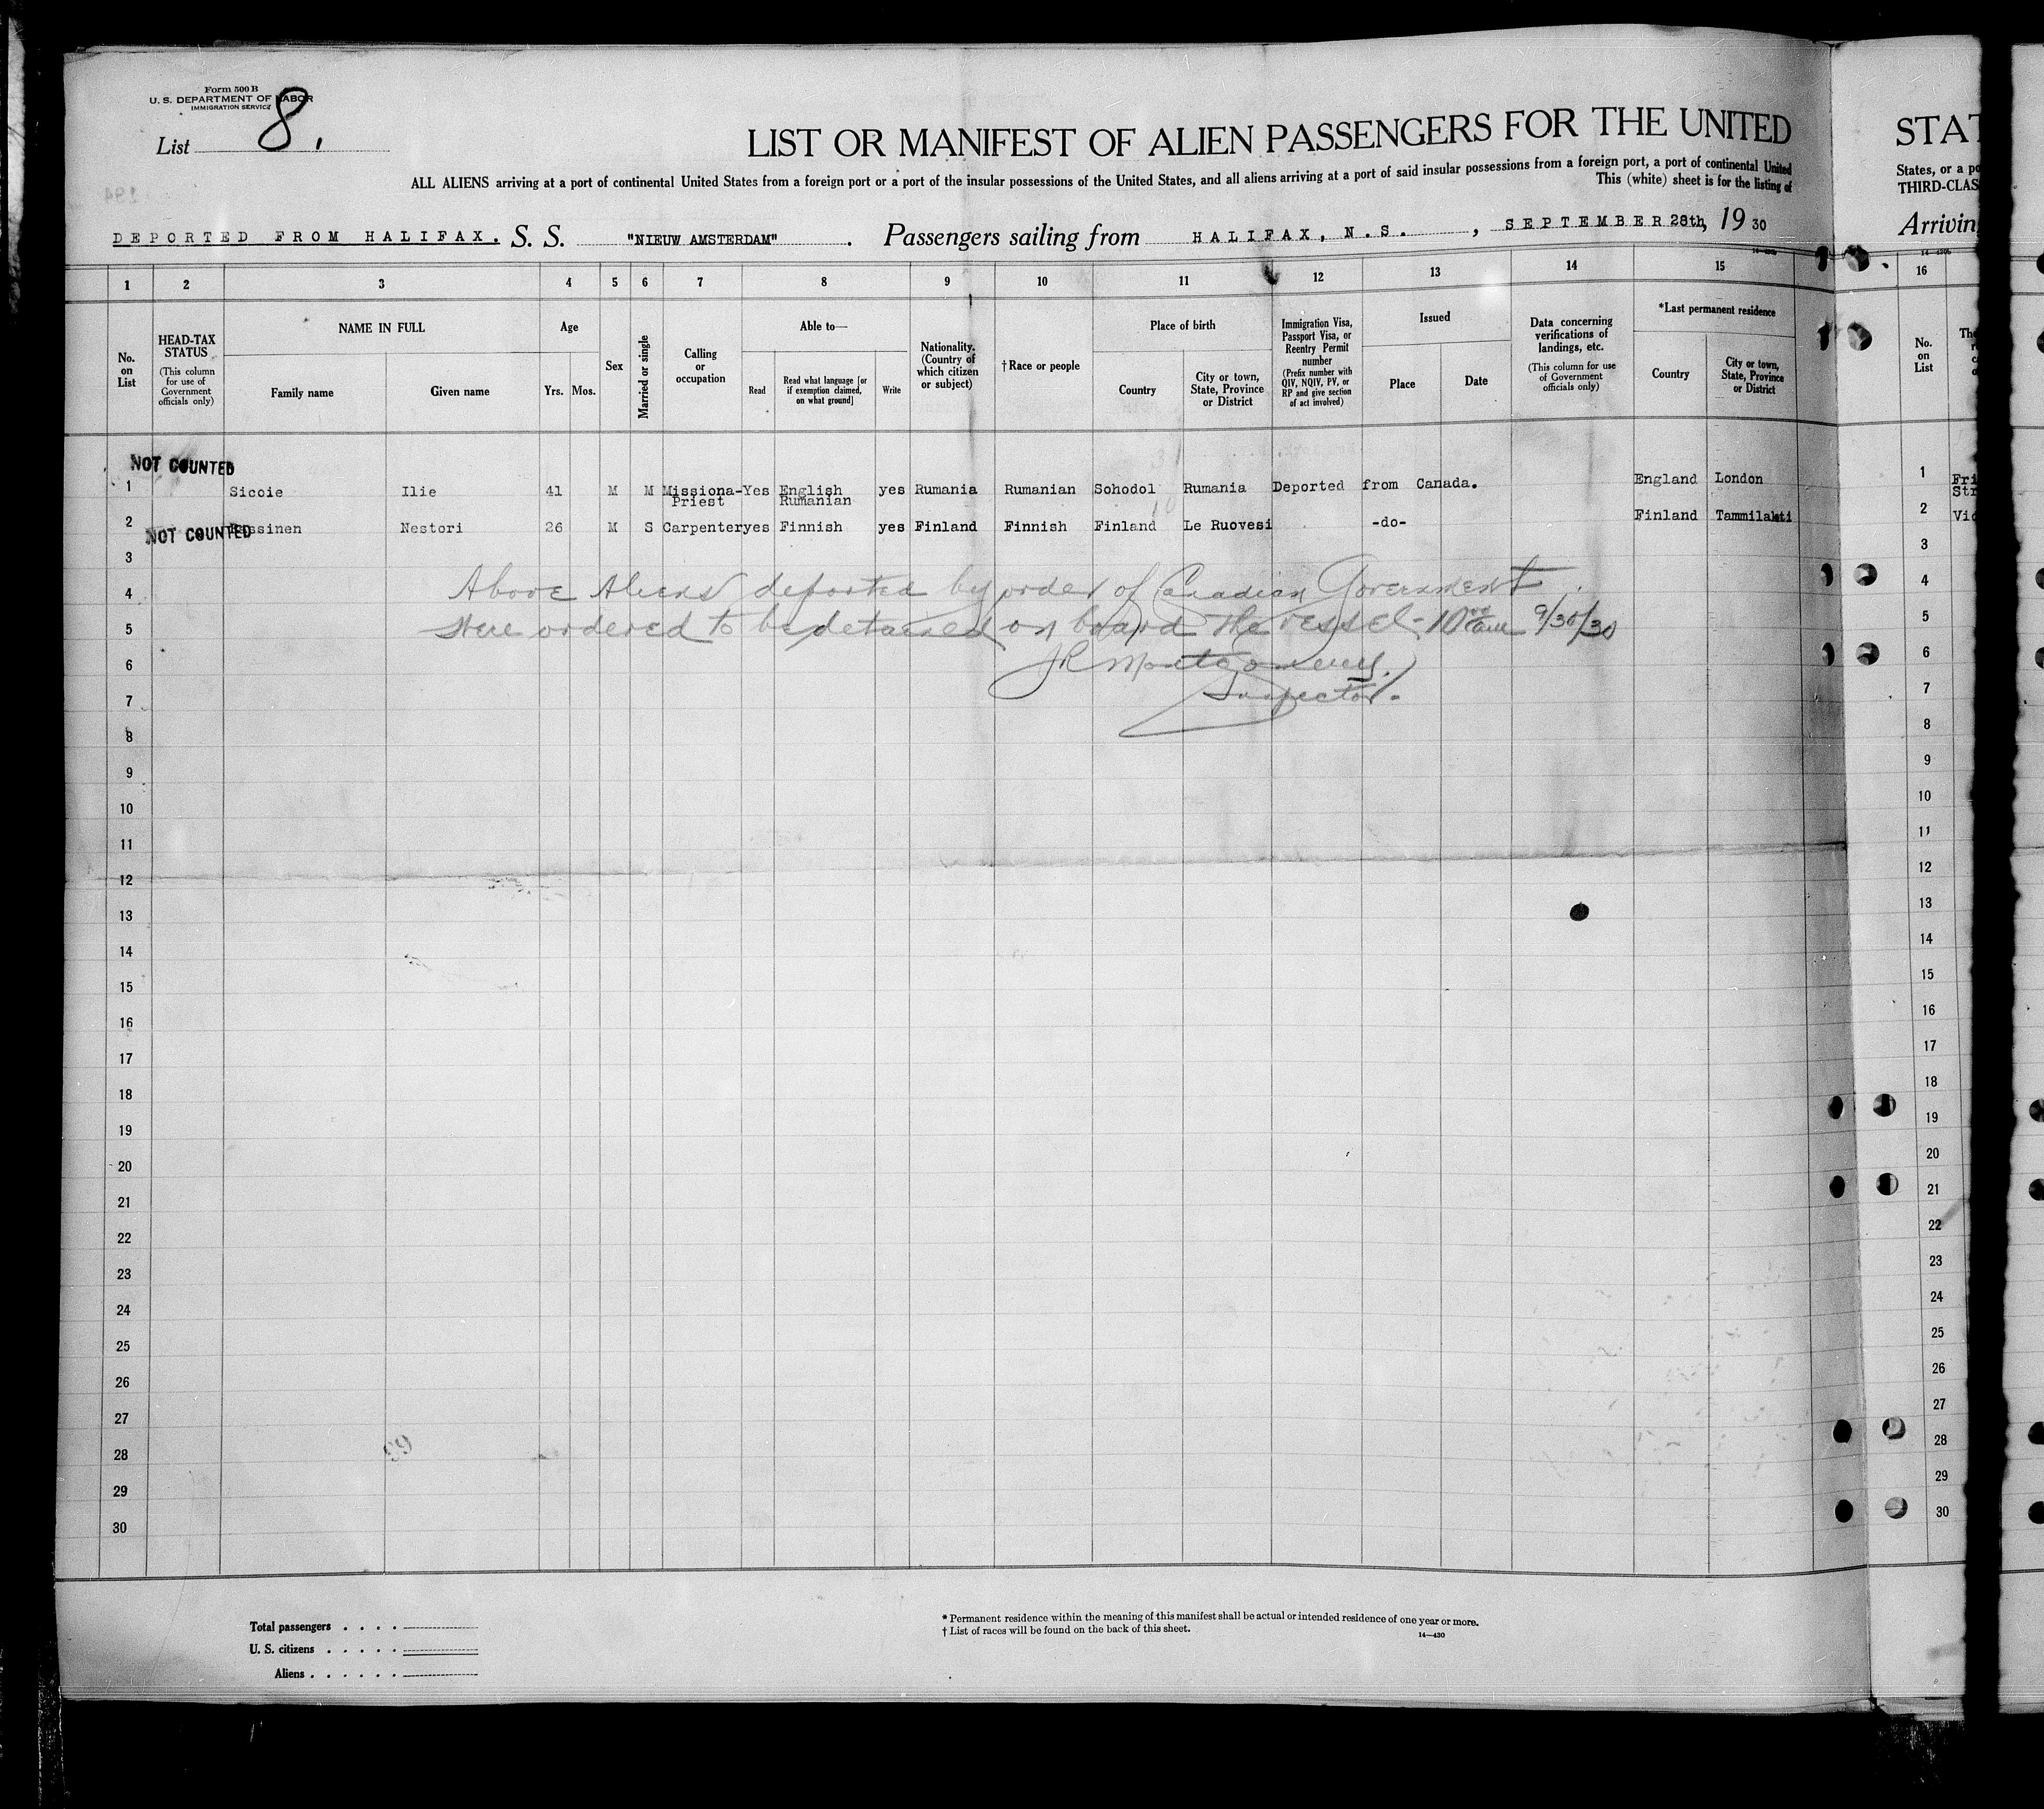 Form 500 B
U. S. DEPARTMENT OF LABOR
IMMIGRATION SERVICE
List 8.
LIST OR MANIFEST OF ALIEN PASSENGERS FOR THE UNITED
ALL ALIENS arriving at a port of continental United States from a foreign port or a port of the insular possessions of the United States, and all aliens arriving at a port of said insular possessions from a foreign port, a port of continental United
This (white) sheet is for the listing of
DEPORTED FROM HALIFAX. S. S. "NIEUW AMSTERDAM". Passengers sailing from HALIFAX, N.S., SEPTEMBER 28th, 1930
STAT
States, or a po
THIRD-CLAS
Arrivin
1 2 3 4 5 6 7 8 9 10 11 12 13 14 15 16
No. on List
HEAD-TAX STATUS (This column for use of Government officials only)
NAME IN FULL
Family name Given name
Age
Yrs. Mos.
Sex
Married or single
Calling or occupation
Able to—
Read Read what language [or if exemption claimed, on what ground] Write
Nationality. (Country of which citizen or subject)
†Race or people
Place of birth
Country City or town, State, Province or District
Immigration Visa, Passport Visa, or Reentry Permit number (Prefix number with QIV, NQIV, PV, or RP and give section of act involved)
Issued
Place Date
Data concerning verifications of landings, etc. (This column for use of Government officials only)
*Last permanent residence
Country City or town, State, Province or District
No. on List
NOT COUNTED
1 Sicoie Ilie 41 M M Missiona- Yes English yes Rumania Rumanian Sohodol Rumania Deported from Canada. England London 1 Fri
Priest Rumanian Str
2 ssinen Nestori 26 M S Carpenter yes Finnish yes Finland Finnish Finland Le Ruovesi -do- Finland Tammilahti 2 Vic
NOT COUNTED
3 3
4 Above Aliens deported by order of Canadian Government 4
5 were ordered to be detained on board the vessel- 10 am 9/30/30 5
6 JR Montgomery. 6
7 Inspector. 7
8 8
9 9
10 10
11 11
12 12
13 13
14 14
15 15
16 16
17 17
18 18
19 19
20 20
21 21
22 22
23 23
24 24
25 25
26 26
27 27
28 28
29 29
30 30
Total passengers . . . .
U. S. citizens . . . . .
Aliens . . . . . .
* Permanent residence within the meaning of this manifest shall be actual or intended residence of one year or more.
† List of races will be found on the back of this sheet.
14—430